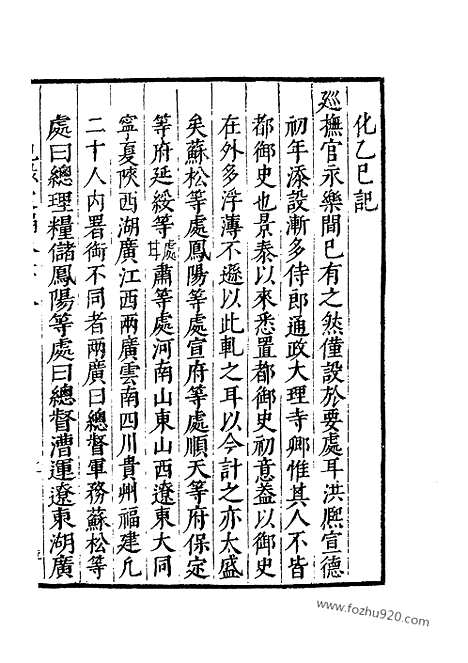 化乙巳記
廵撫官永樂間已有之然僅設於要處耳洪熈宣德
初年添設漸多侍郎通政大理寺卿惟其人不皆
都御史也景泰以來悉置都御史初意葢以御史
在外多浮薄不遜以此軋之耳以今計之亦太盛
矣蘇松等處鳳陽等處宣府等處順天等府保定
等府延綏等處甘肅等處河南山東山西遼東大同
寧夏陜西湖廣江西兩廣雲南四川貴州福建凢
二十人内署銜不同者兩廣曰總督軍務蘇松等
處曰總理糧儲鳳陽等處曰總督漕運遼東湖廣
www.fozhu920.com